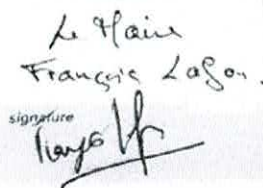 Le Maire
François Lafon.
signature